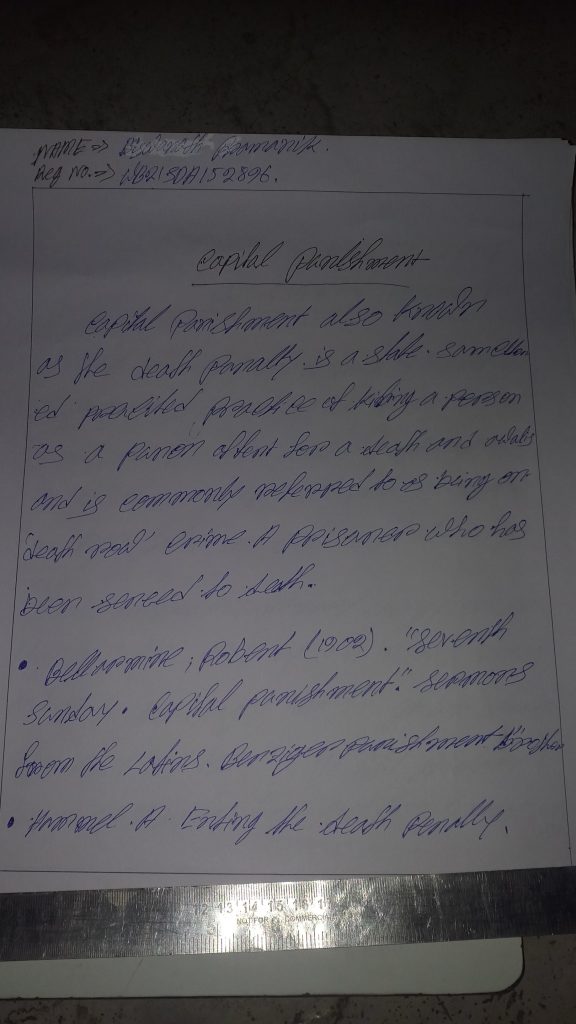 NAME => Pramanik.
Reg No. => WB21SDA152896.
Capital Punishment
Capital Punishment also known
as the death Penalty is a state.
ed practice of a person
as a for a death and
and is commonly referred to as being on
"death row" crime. A Prisoner who has
been to death.
• Bellarmine, Robert (1902). "Seventh
Sunday. Capital punishment". Sermons
from the Latins. Benziger punishment
• Hammel. A. Enting the death Penally.
12 13 14 15 16 17
NOT FOR COMMERCIAL